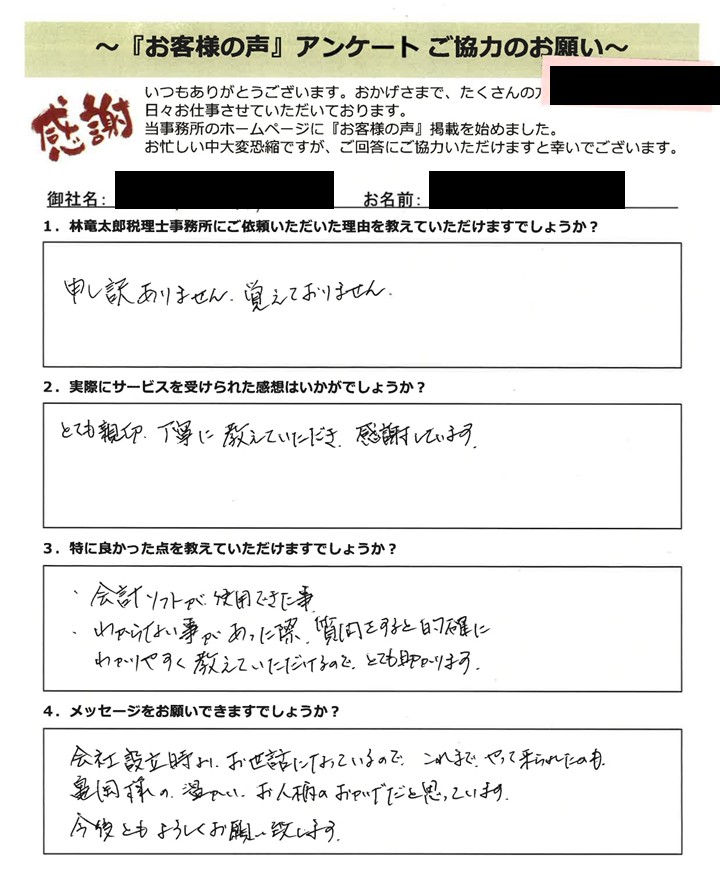 ～『お客様の声』アンケート ご協力のお願い～
感謝
いつもありがとうございます。おかげさまで、たくさんの
日々お仕事させていただいております。
当事務所のホームページに『お客様の声』掲載を始めました。
お忙しい中大変恐縮ですが、ご回答にご協力いただけますと幸いでございます。
御社名： お名前：
１．林竜太郎税理士事務所にご依頼いただいた理由を教えていただけますでしょうか？
申し訳ありません。覚えておりません。
２．実際にサービスを受けられた感想はいかがでしょうか？
とても親切、丁寧に教えていただき、感謝しています。
３．特に良かった点を教えていただけますでしょうか？
・会計ソフトが使用できた事
・わからない事があった際、質問をすると的確に
わかりやすく教えていただけるので、とても助かります。
４．メッセージをお願いできますでしょうか？
会社設立時より、お世話になっているので、これまでやって来られたのも、
亀岡様の、温かい、お人柄のおかげだと思っています。
今後ともよろしくお願い致します。